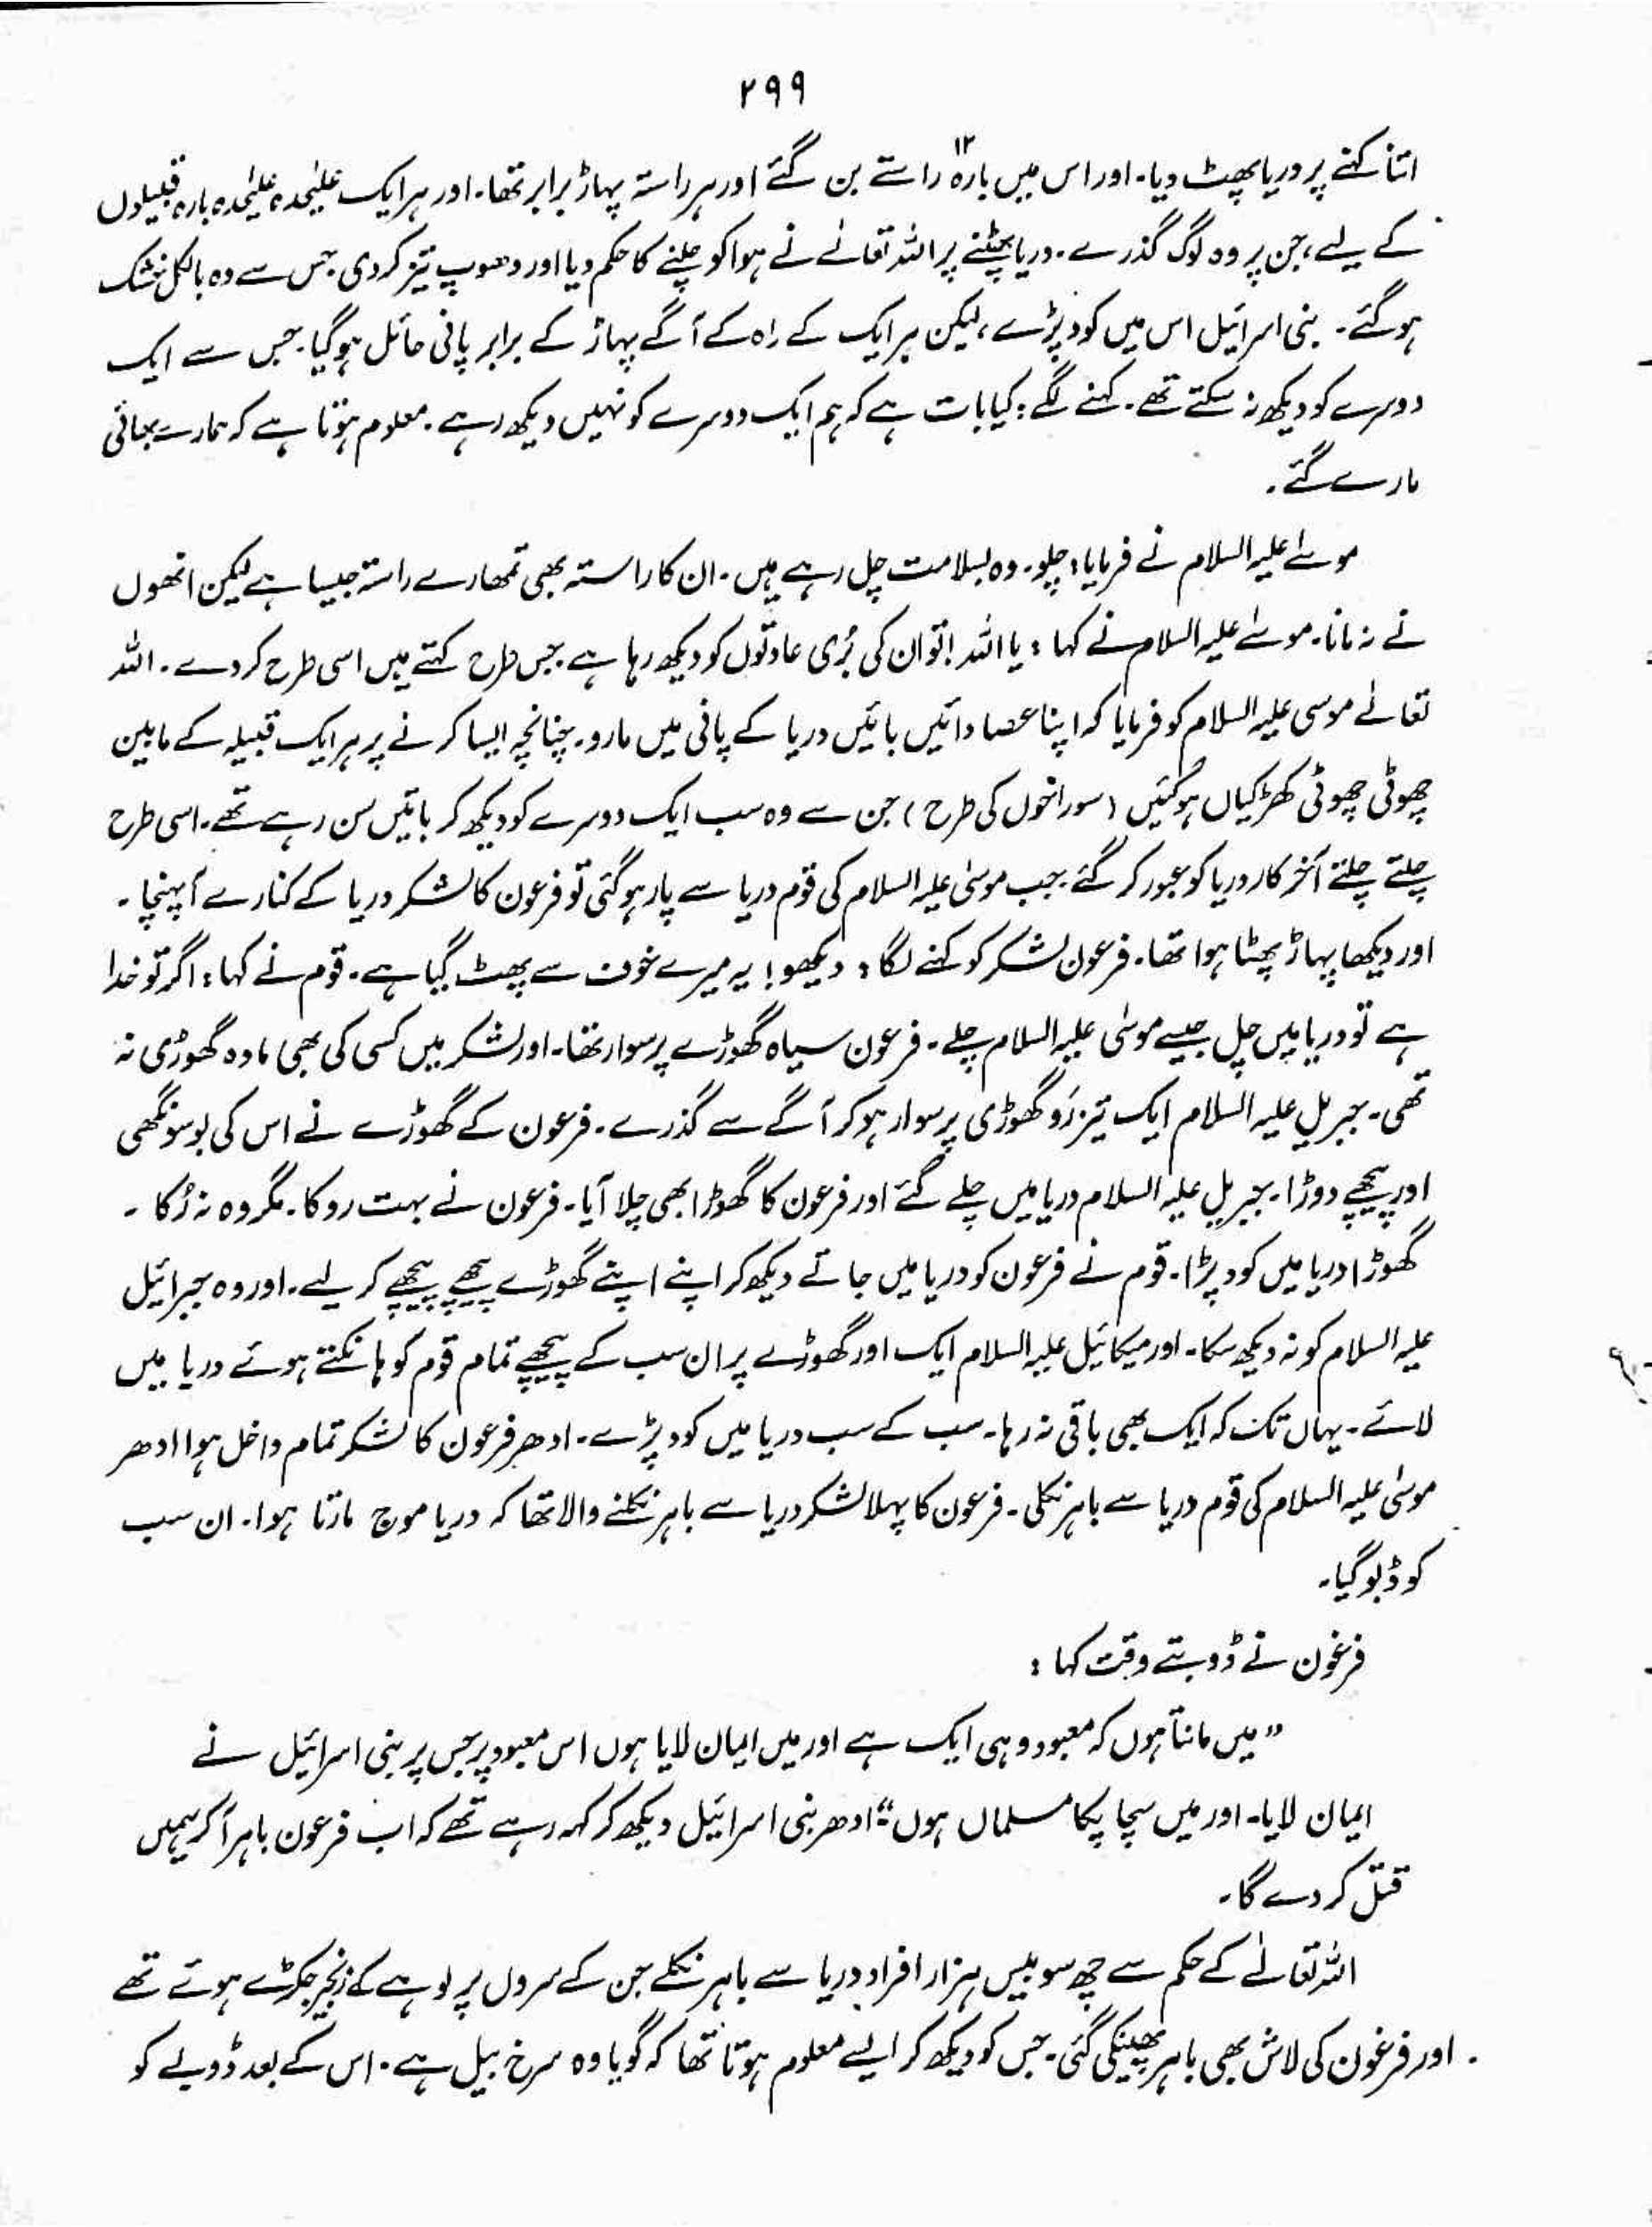 ۲۹۹
اتنا کہنے پر دریا پھٹ دیا۔ اور اس میں بارہ ۱۲ راستے بن گئے اور ہر راستہ پہاڑ برابر تھا۔ اور ہر ایک علیٰحدہ علیٰحدہ بارہ قبیلوں
کے لیے، جن پر وہ لوگ گذرے۔ دریا پھٹنے پر اللہ تعالےٰ نے ہوا کو چلنے کا حکم دیا اور دھوپ تیز کردی جس سے وہ بالکل خشک
ہوگئے۔ بنی اسرائیل اس میں کود پڑے، لیکن ہر ایک کے راہ کے آگے پہاڑ کے برابر پانی حائل ہوگیا۔ جس سے ایک
دوسرے کو دیکھ نہ سکتے تھے۔ کہنے لگے: کیا بات ہے کہ ہم ایک دوسرے کو نہیں دیکھ رہے۔ معلوم ہوتا ہے کہ ہمارے بھائی
مارے گئے۔
موسےٰ علیہ السلام نے فرمایا: چلو۔ وہ بسلامت چل رہے ہیں۔ ان کا راستہ بھی تمھارے راستہ جیسا ہے لیکن انھوں
نے نہ مانا۔ موسےٰ علیہ السلام نے کہا: یا اللہ! تو ان کی بُری عادتوں کو دیکھ رہا ہے جس طرح کہتے ہیں اسی طرح کردے۔ اللہ
تعالےٰ موسی علیہ السلام کو فرمایا کہ اپنا عصا دائیں بائیں دریا کے پانی میں مارو۔ چنانچہ ایسا کرنے پر ہر ایک قبیلہ کے مابین
چھوٹی چھوٹی کھڑکیاں ہوگئیں (سوراخوں کی طرح) جن سے وہ سب ایک دوسرے کو دیکھ کر باتیں سن رہے تھے۔ اسی طرح
چلتے چلتے آخر کار دریا کو عبور کر گئے۔ جب موسیٰ علیہ السلام کی قوم دریا سے پار ہوگئی تو فرعون کا لشکر دریا کے کنارے آپہنچا۔
اور دیکھا پہاڑ پھٹا ہوا تھا۔ فرعون لشکر کو کہنے لگا: دیکھو! یہ میرے خوف سے پھٹ گیا ہے۔ قوم نے کہا: اگر تو خدا
ہے تو دریا میں چل جیسے موسیٰ علیہ السلام چلے۔ فرعون سیاہ گھوڑے پر سوار تھا۔ اور لشکر میں کسی کی بھی مادہ گھوڑی نہ
تھی۔ جبریل علیہ السلام ایک تیز رَو گھوڑی پر سوار ہوکر آگے سے گذرے۔ فرعون کے گھوڑے نے اس کی بو سونگھی
اور پیچھے دوڑا۔ جبریل علیہ السلام دریا میں چلے گئے اور فرعون کا گھوڑا بھی چلا آیا۔ فرعون نے بہت روکا۔ مگر وہ نہ رُکا۔
گھوڑا دریا میں کود پڑا۔ قوم نے فرعون کو دریا میں جاتے دیکھ کر اپنے اپنے گھوڑے پیچھے پیچھے کر لیے۔ اور وہ جبرائیل
علیہ السلام کو نہ دیکھ سکا۔ اور میکائیل علیہ السلام ایک اور گھوڑے پر ان سب کے پیچھے تمام قوم کو ہانکتے ہوئے دریا میں
لائے۔ یہاں تک کہ ایک بھی باقی نہ رہا۔ سب کے سب دریا میں کود پڑے۔ ادھر فرعون کا لشکر تمام داخل ہوا ادھر
موسیٰ علیہ السلام کی قوم دریا سے باہر نکلی۔ فرعون کا پہلا لشکر دریا سے باہر نکلنے والا تھا کہ دریا موج مارتا ہوا۔ ان سب
کو ڈبو گیا۔
فرغون نے ڈوبتے وقت کہا:
"میں مانتا ہوں کہ معبود وہی ایک ہے اور میں ایمان لایا ہوں اس معبود پر جس پر بنی اسرائیل نے
ایمان لایا۔ اور میں سچا پکا مسلماں ہوں" ادھر بنی اسرائیل دیکھ کر کہہ رہے تھے کہ اب فرعون باہر آکر ہمیں
قتل کر دے گا۔
اللہ تعالےٰ کے حکم سے چھ سو بیس ہزار افراد دریا سے باہر نکلے جن کے سروں پر لوہے کے زنجیر جکڑے ہوئے تھے
اور فرغون کی لاش بھی باہر پھینکی گئی۔ جس کو دیکھ کر ایسے معلوم ہوتا تھا کہ گویا وہ سرخ بیل ہے۔ اس کے بعد ڈوبے کو